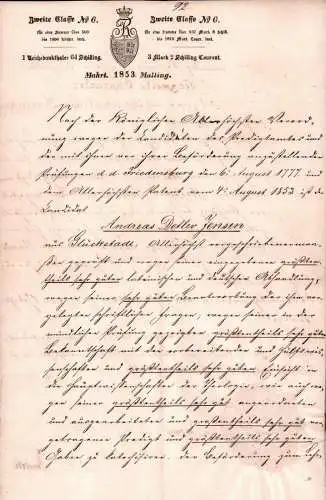 92
Zweite Classe № 6.
Zweite Classe № 6.
für eine Summe über 500
für eine Summe über 937 Mark 8 Schill.
1 Reichsbankthaler 64 Schilling.
3 Mark 2 Schilling Courant.
Mahrt. 1853. Malling.
Nach der Königlichen Allerhöchsten Verord-
nung wegen der Candidaten des Predigtamtes und
der mit ihnen vor ihrer Beförderung anzustellenden
Prüfungen d. d. Fredensburg den 6. August 1777 und
dem Allerhöchsten Patent vom 4. August 1852 ist der
Candidat
Andreas Detlev Jensen
aus Glückstadt, Allerhöchst vorgeschriebenermaa-
ßen geprüft und wegen einer eingelieferten größten-
theils sehr guten lateinischen und deutschen Abhandlung,
wegen seiner sehr guten Beantwortung der ihm vor-
gelegten schriftlichen Fragen, wegen seiner in der
mündlichen Prüfung gezeigten größtentheils sehr guten
Bekanntschaft mit den vorbereitenden und Hülfswis-
senschaften und größtentheils sehr guten Einsicht in
die Hauptwissenschaften der Theologie, wie auch we-
gen seiner größtentheils sehr gut angeordneten
und ausgearbeiteten und größtentheils sehr gut vor-
getragenen Predigt und größtentheils sehr guten
Gaben zu katechisiren, der Beförderung zum Lehr-